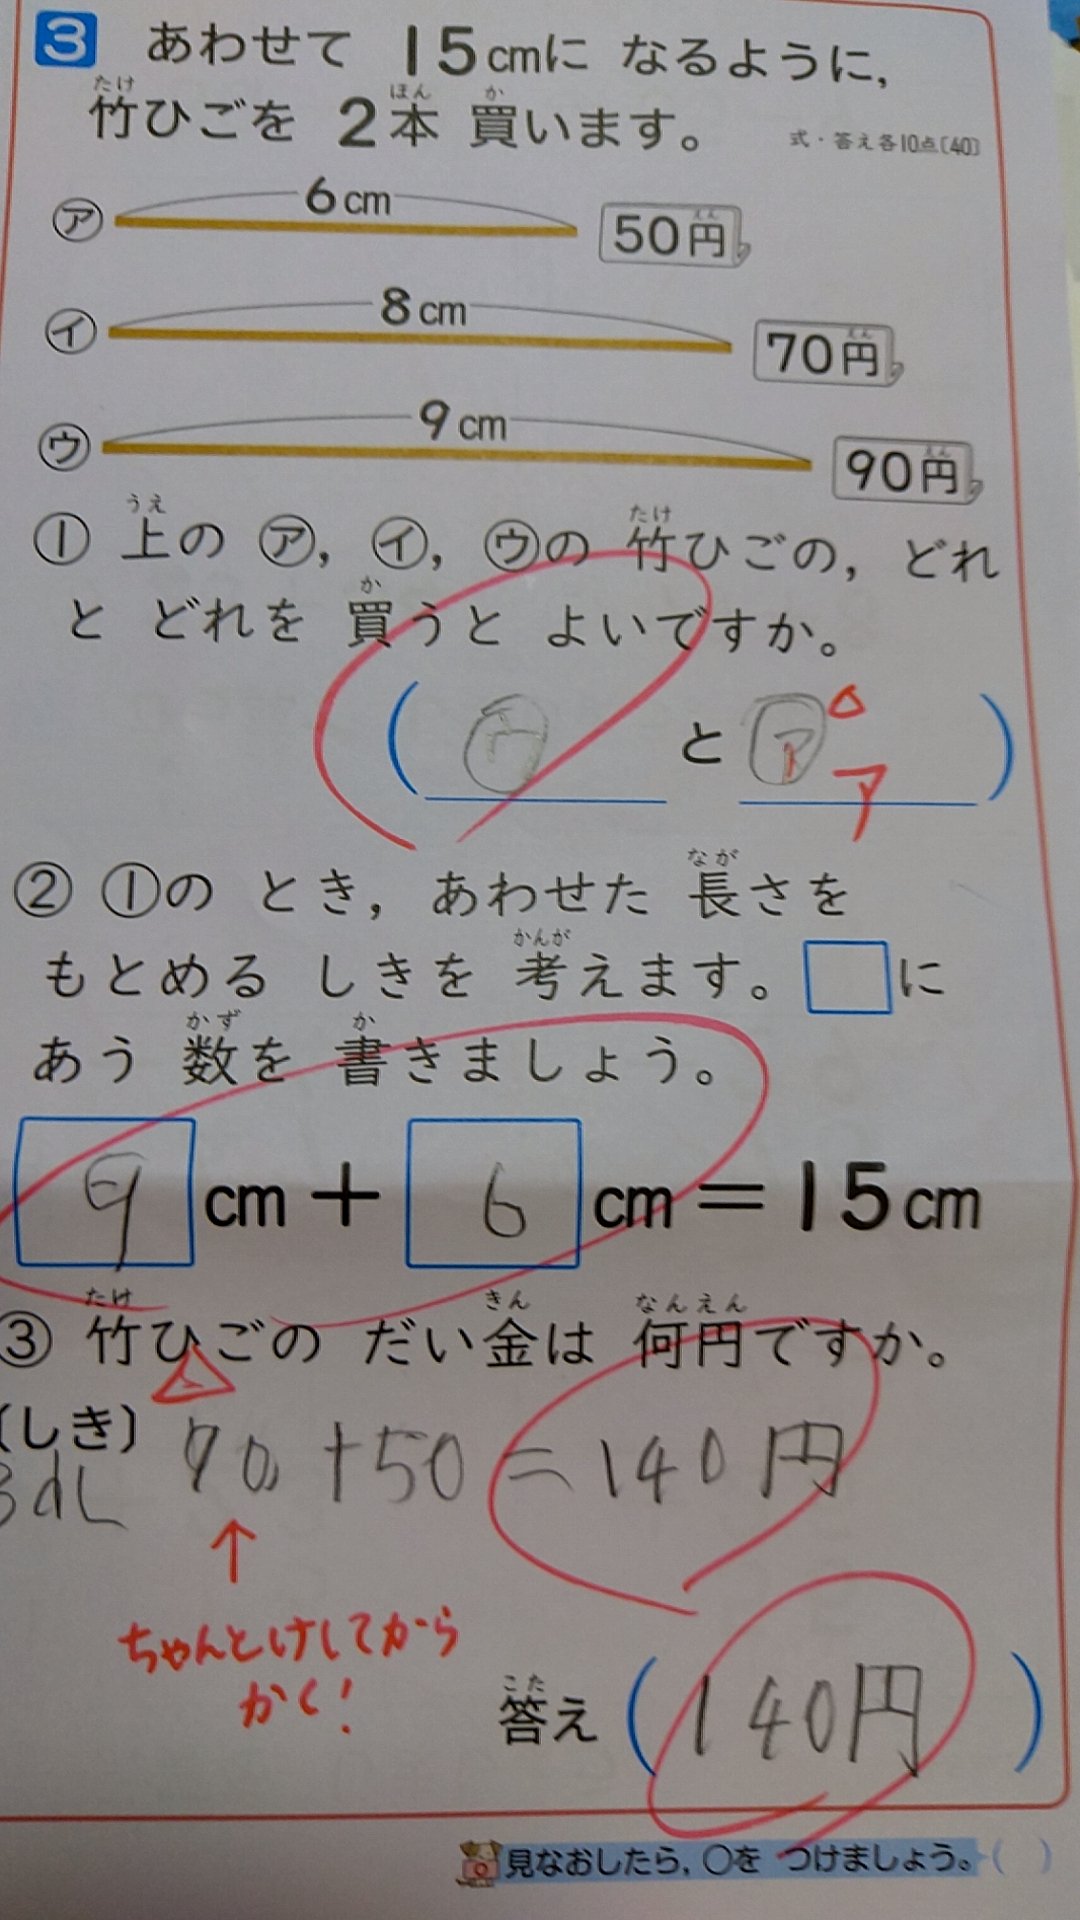 3 あわせて 15cmに なるように,
竹ひごを 2本 買います。
たけ ほん か
式・答え各10点〔40〕
㋐ 6cm 50円
えん
㋑ 8cm 70円
えん
㋒ 9cm 90円
えん
① 上の ㋐, ㋑, ㋒の 竹ひごの, どれ
うえ たけ
と どれを 買うと よいですか。
か
( ㋒ と ㋐ )
ア
② ①の とき, あわせた 長さを
なが
もとめる しきを 考えます。□に
かんが
あう 数を 書きましょう。
かず か
9 cm + 6 cm = 15cm
③ 竹ひごの だい金は 何円ですか。
たけ きん なんえん
(しき) 90+50=140円
3dL
↑
ちゃんとけしてから
かく!
答え (140円)
こた
見なおしたら, ○を つけましょう。( )